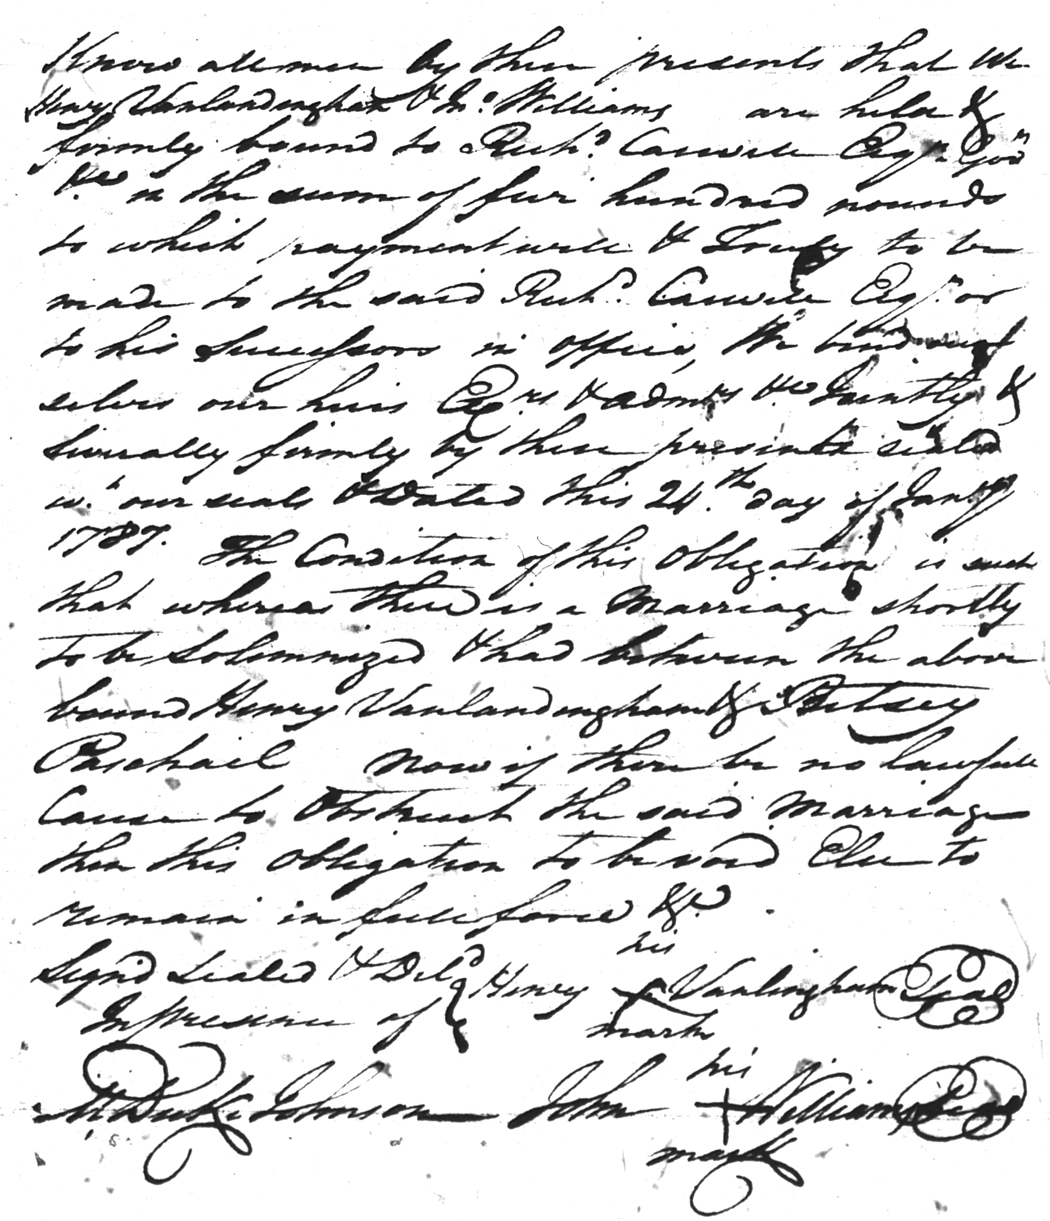 Know all men by these presents that we
Henry Vanlandingham & Jno. Williams are held &
firmly bound to Richd. Caswell Esqr. Govr
&c in the sum of five hundred pounds
to which payment well & Truly to be
made to the said Richd. Caswell Esqr. or
to his Successors in office, We bind our
selves our heirs Exrs. & admrs &c Jointly &
severally firmly by these presents sealed
w. our seals & Dated this 24th day of Jany
1787. The Condition of this obligation is such
that whereas there is a Marriage shortly
to be Solemnized & had between the above
bound Henry Vanlandingham & Betsey
Paschail Now if there be no lawfull
Cause to Obstruct the said Marriage
then this obligation to be void Else to
remain in full force &c.
Sign'd sealed & Deld Henry his X mark Vanlingham Seal
In presence of
M Duke Johnson John his + mark Williams Seal